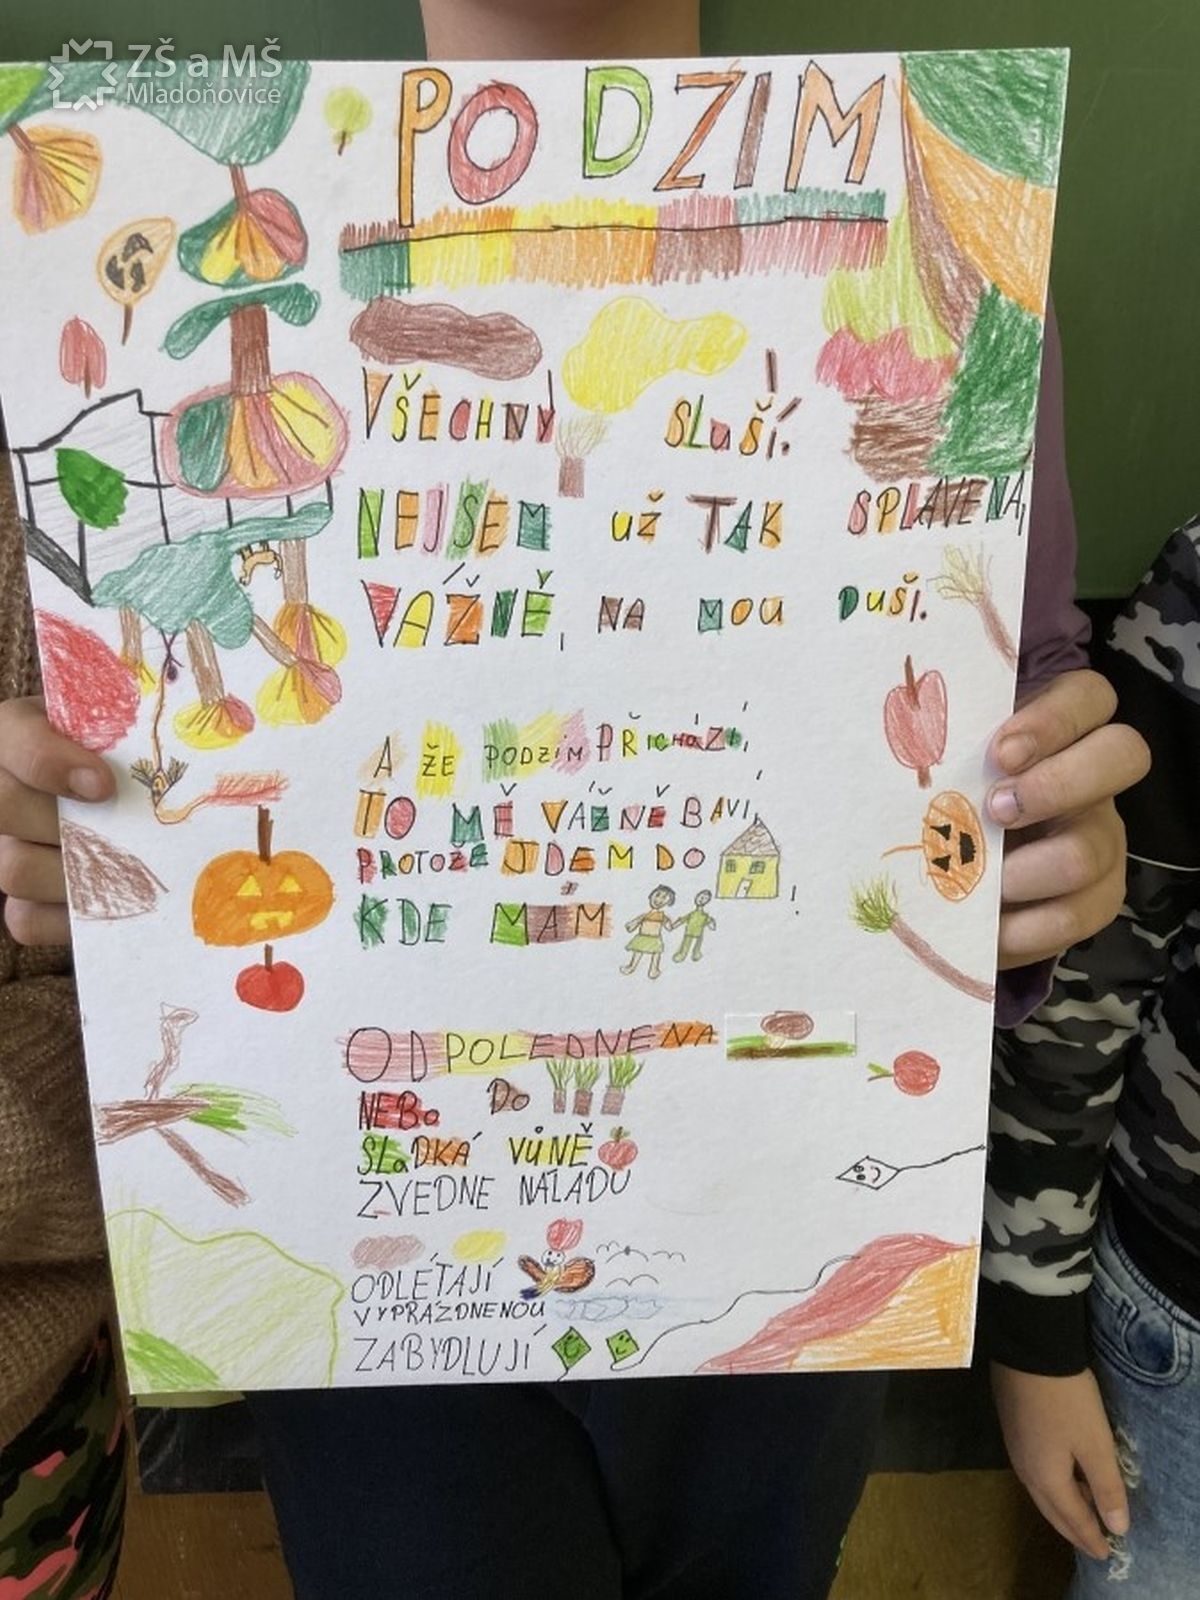 ZŠ a MŠ
Mladoňovice
PODZIM
VŠECHNY SLUŠÍ.
NEJSEM UŽ TAK SPLAVENÁ,
VÁŽNĚ, NA MOU DUŠI.
A ŽE PODZIM PŘICHÁZÍ,
TO MĚ VÁŽNĚ BAVÍ,
PROTOŽE JDEM DO
KDE MÁM !
ODPOLEDNE NA
NEBO DO
SLADKÁ VŮNĚ
ZVEDNE NÁLADU
ODLÉTAJÍ
VYPRÁZDNENOU
ZABYDLUJÍ